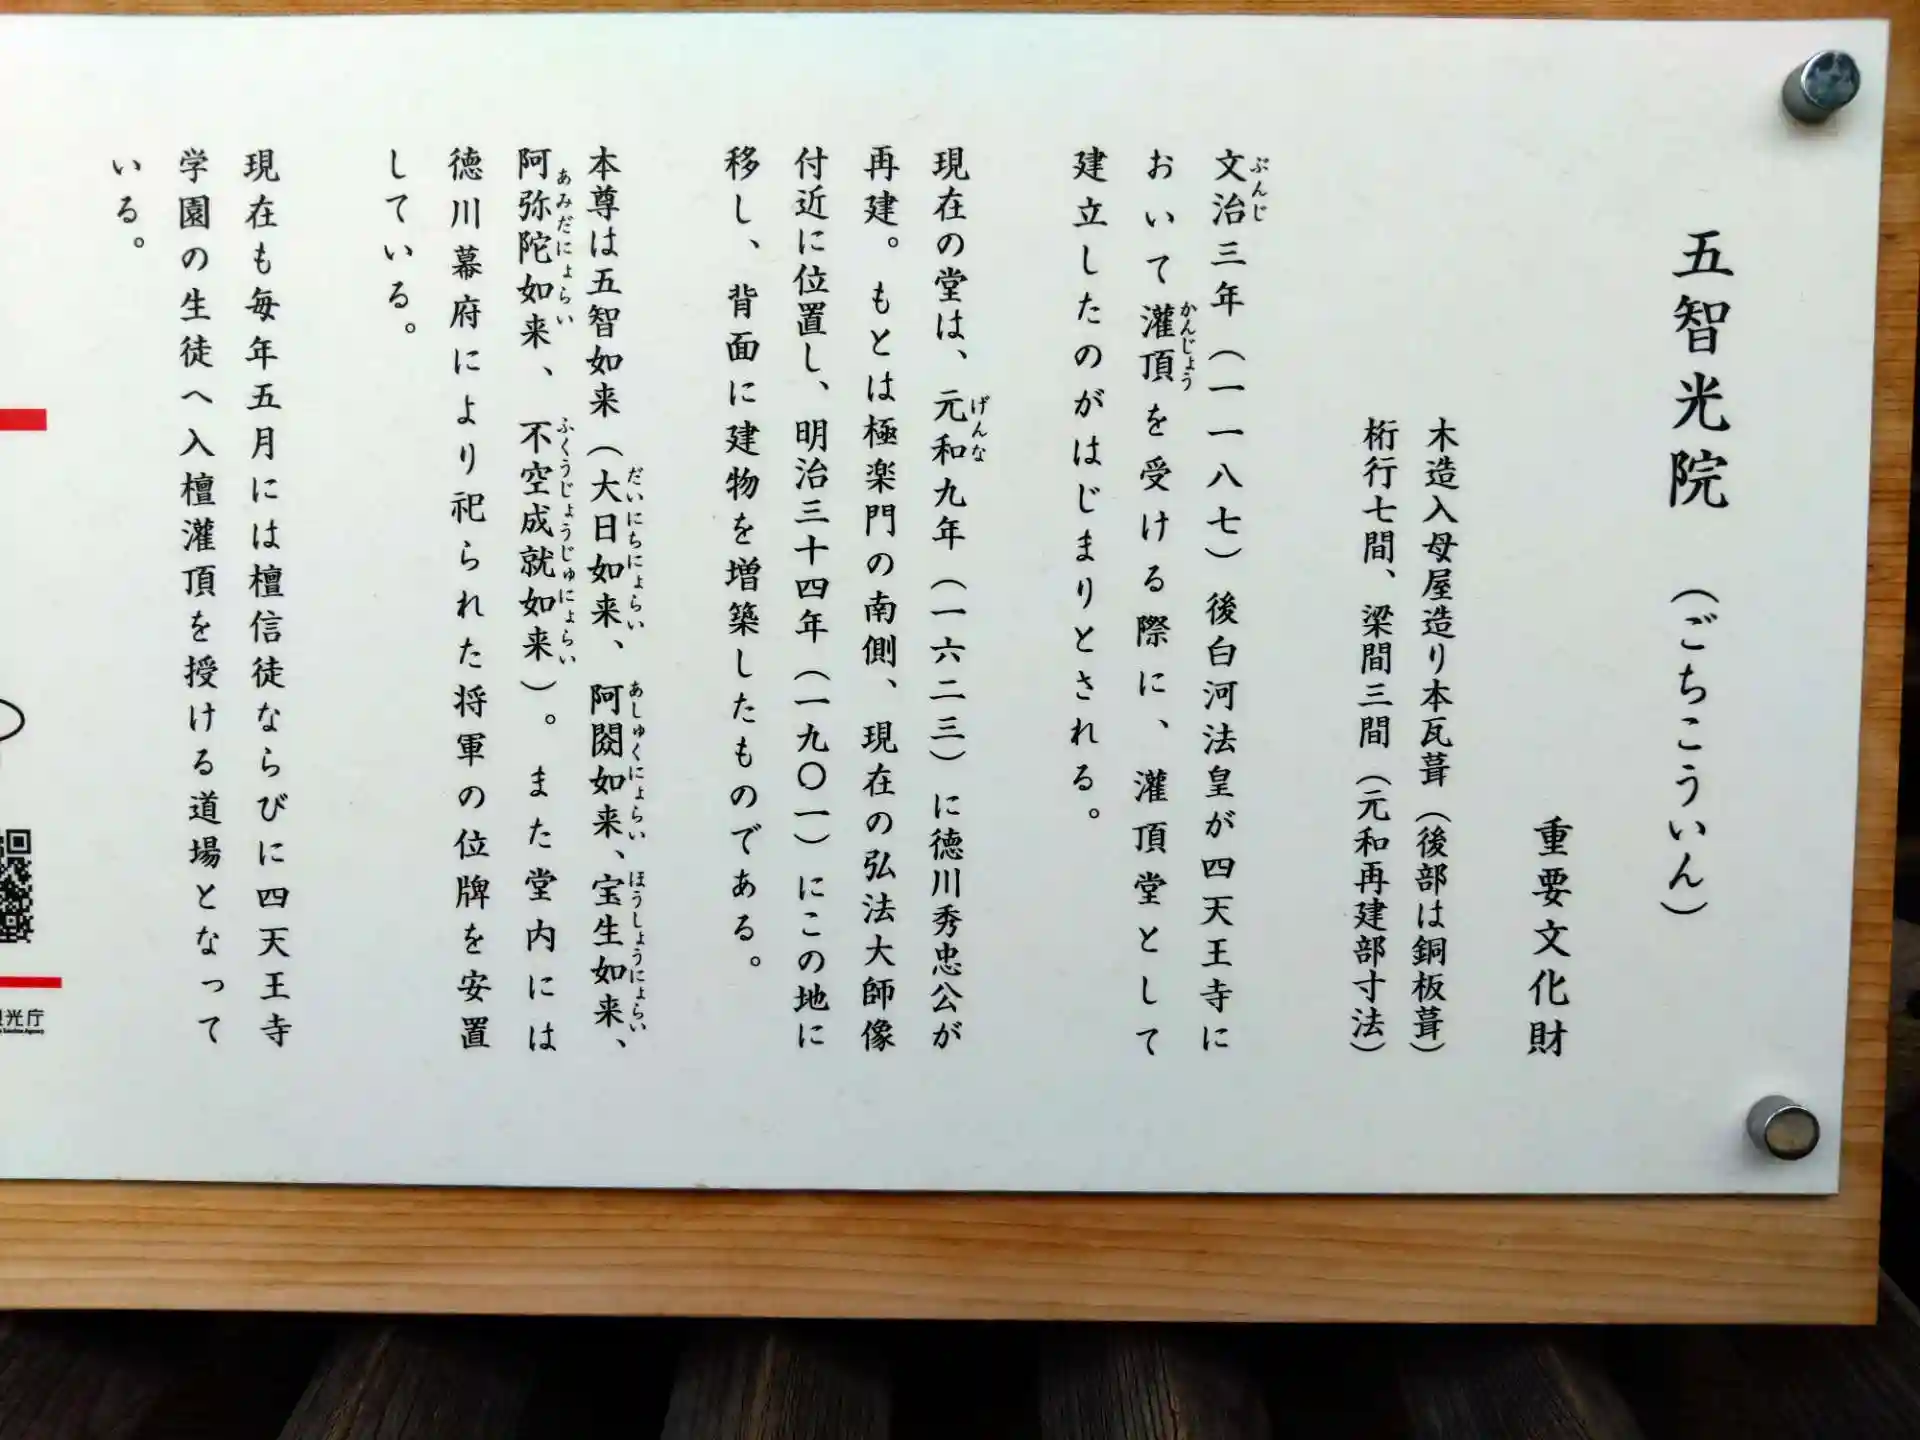 五智光院 （ごちこういん）
重要文化財
木造入母屋造り本瓦葺（後部は銅板葺）
桁行七間、梁間三間（元和再建部寸法）
ぶんじ
文治三年（一一八七）後白河法皇が四天王寺に
かんじょう
おいて灌頂を受ける際に、灌頂堂として
建立したのがはじまりとされる。
げんな
現在の堂は、元和九年（一六二三）に徳川秀忠公が
再建。もとは極楽門の南側、現在の弘法大師像
付近に位置し、明治三十四年（一九〇一）にこの地に
移し、背面に建物を増築したものである。
だいにちにょらい あしゅくにょらい ほうしょうにょらい
本尊は五智如来（大日如来、阿閦如来、宝生如来、
あみだにょらい ふくうじょうじゅにょらい
阿弥陀如来、不空成就如来）。また堂内には
徳川幕府により祀られた将軍の位牌を安置
している。
現在も毎年五月には檀信徒ならびに四天王寺
学園の生徒へ入檀灌頂を授ける道場となって
いる。
光庁